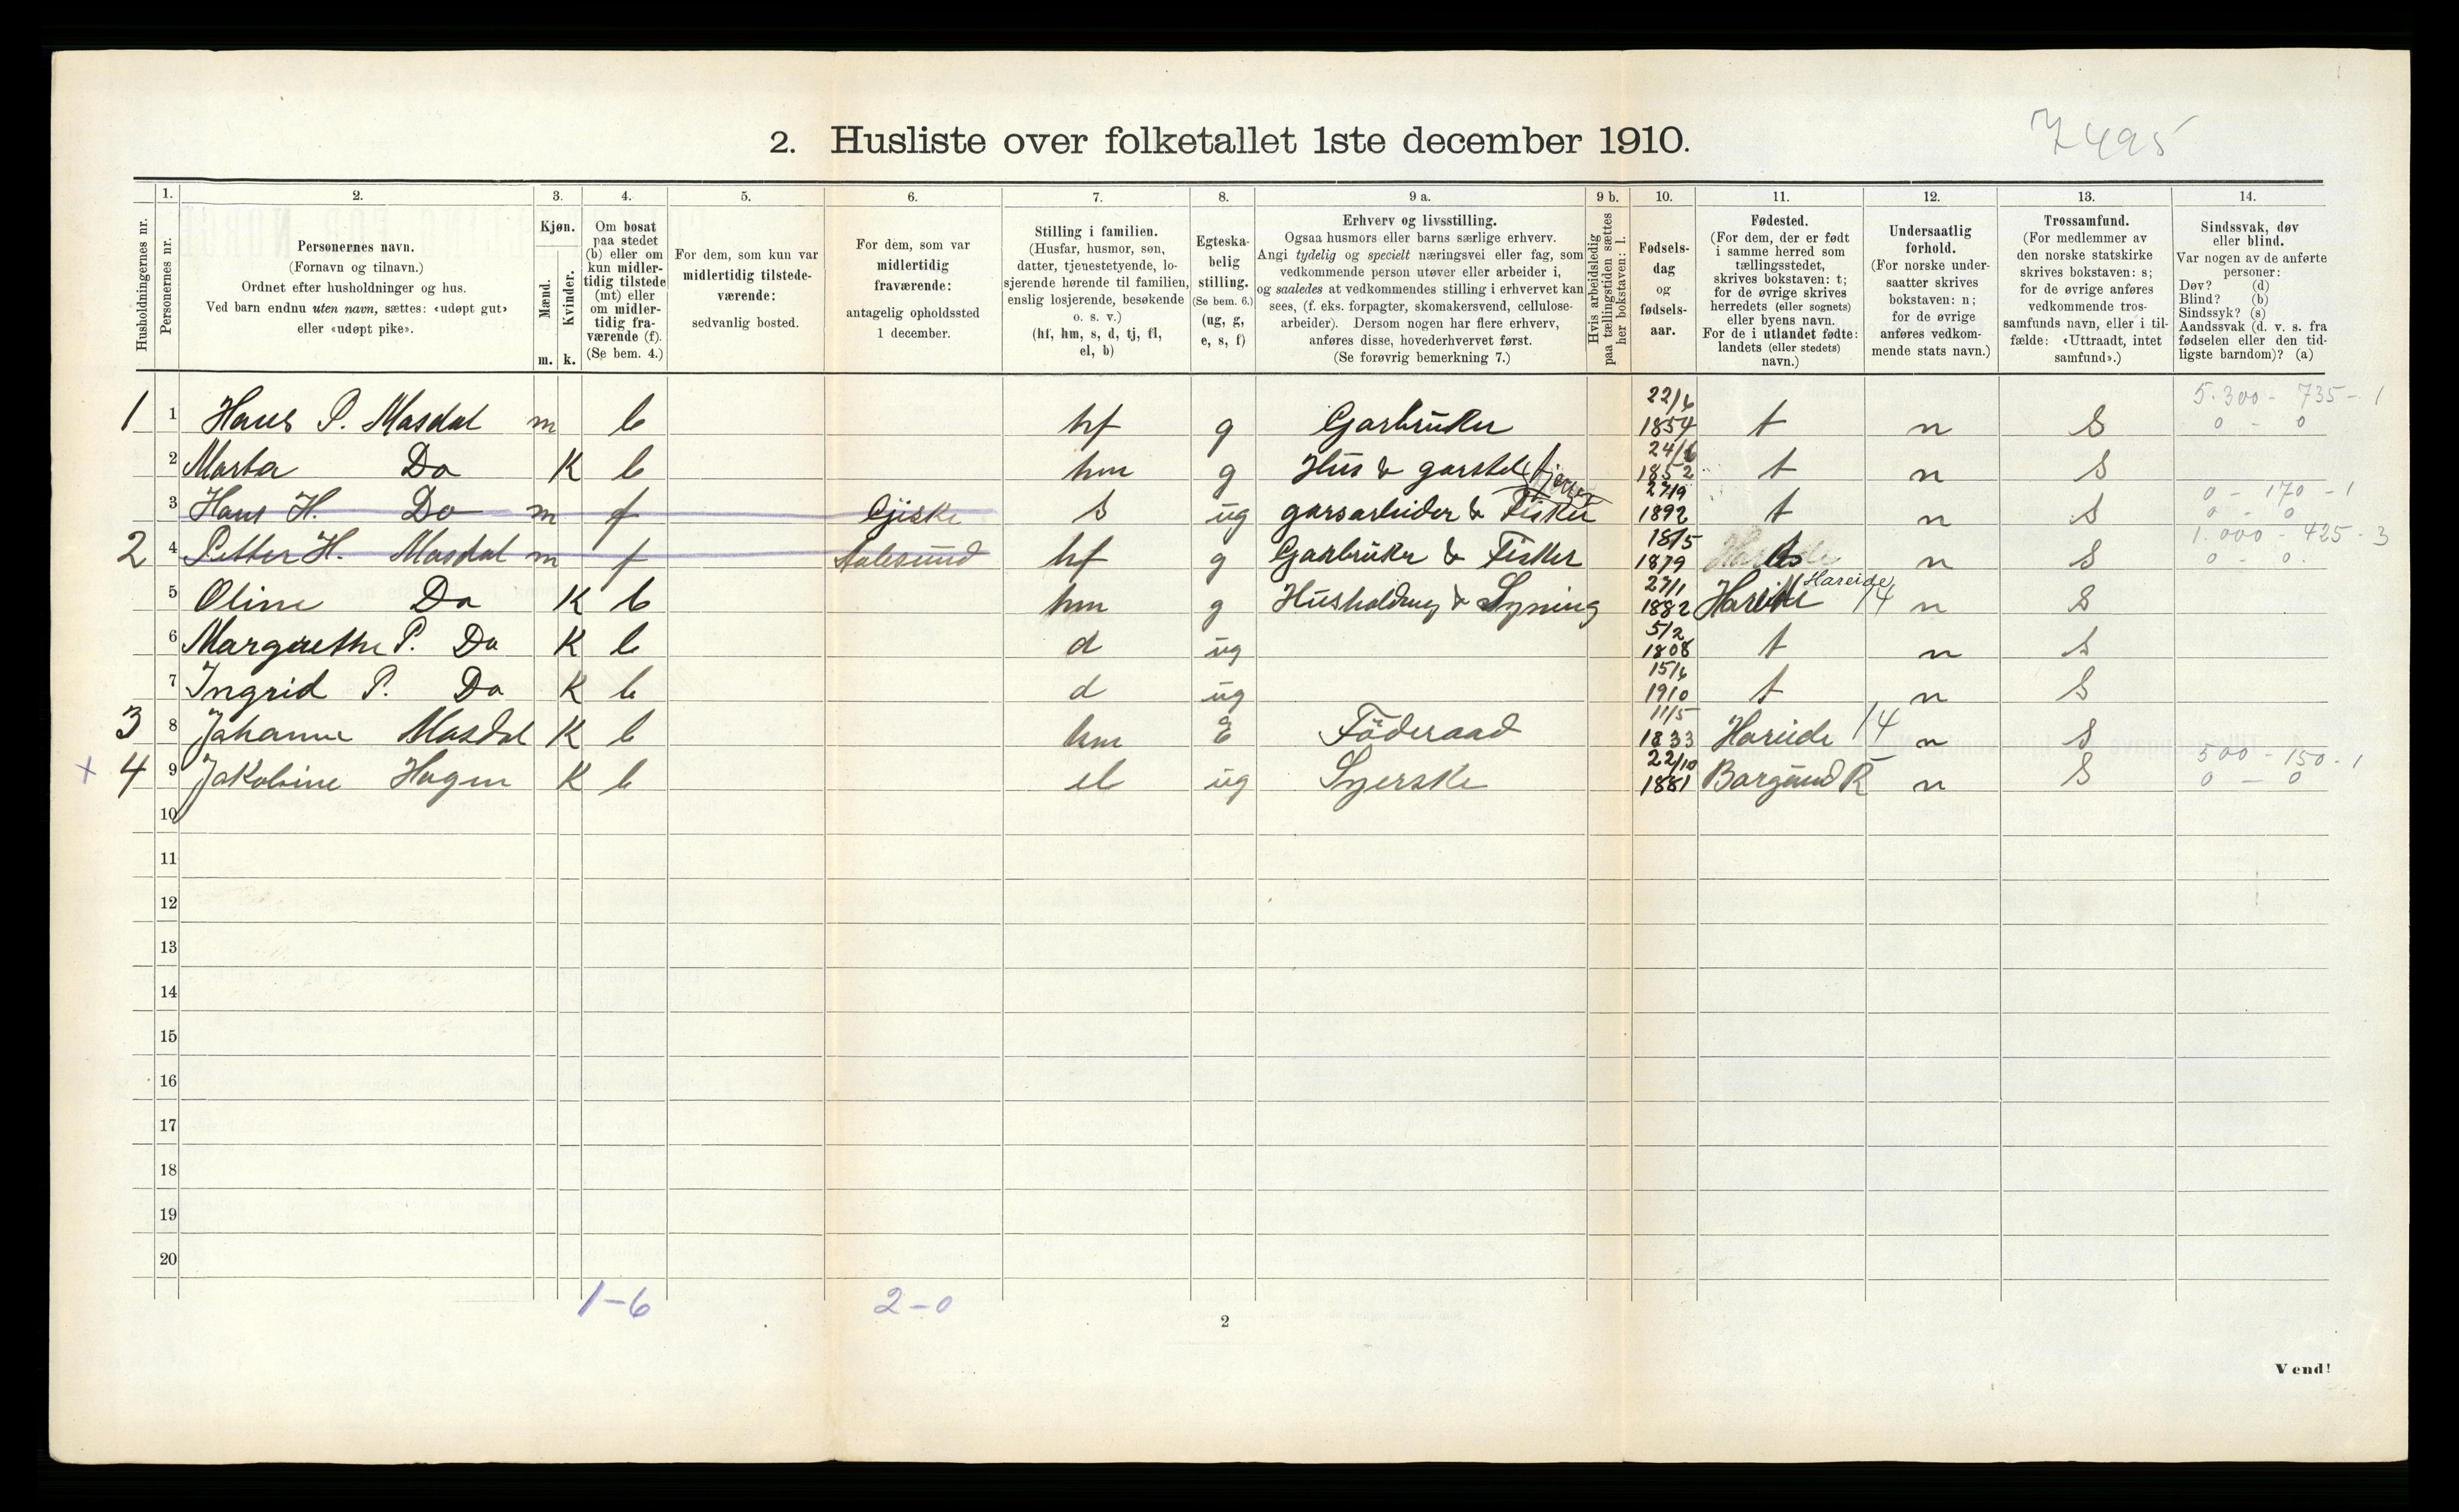 7495
2. Husliste over folketallet 1ste december 1910.
Husholdningernes nr.
1.
Personernes nr.
2.
Personernes navn.
(Fornavn og tilnavn.)
Ordnet efter husholdninger og hus.
Ved barn endnu uten navn, sættes: «udøpt gut»
eller «udøpt pike».
3.
Kjøn.
Mænd.
Kvinder.
m. k.
4.
Om bosat
paa stedet
(b) eller om
kun midler-
tidig tilstede
(mt) eller
om midler-
tidig fra-
værende (f).
(Se bem. 4.)
5.
For dem, som kun var
midlertidig tilstede-
værende:
sedvanlig bosted.
6.
For dem, som var
midlertidig
fraværende:
antagelig opholdssted
1 december.
7.
Stilling i familien.
(Husfar, husmor, søn,
datter, tjenestetyende, lo-
sjerende hørende til familien,
enslig losjerende, besøkende
o. s. v.)
(hf, hm, s, d, tj, fl,
el, b)
8.
Egteska-
belig
stilling.
(Se bem. 6.)
(ug, g,
e, s, f)
9 a.
Erhverv og livsstilling.
Ogsaa husmors eller barns særlige erhverv.
Angi tydelig og specielt næringsvei eller fag, som
vedkommende person utøver eller arbeider i,
og saaledes at vedkommendes stilling i erhvervet kan
sees, (f. eks. forpagter, skomakersvend, cellulose-
arbeider). Dersom nogen har flere erhverv,
anføres disse, hovederhvervet først.
(Se forøvrig bemerkning 7.)
9 b.
Hvis arbeidsledig
paa tællingstiden sættes
her bokstaven: l.
10.
Fødsels-
dag
og
fødsels-
aar.
11.
Fødested.
(For dem, der er født
i samme herred som
tællingsstedet,
skrives bokstaven: t;
for de øvrige skrives
herredets (eller sognets)
eller byens navn.
For de i utlandet fødte:
landets (eller stedets)
navn.)
12.
Undersaatlig
forhold.
(For norske under-
saatter skrives
bokstaven: n;
for de øvrige
anføres vedkom-
mende stats navn.)
13.
Trossamfund.
(For medlemmer av
den norske statskirke
skrives bokstaven: s;
for de øvrige anføres
vedkommende tros-
samfunds navn, eller i til-
fælde: «Uttraadt, intet
samfund».)
14.
Sindssvak, døv
eller blind.
Var nogen av de anførte
personer:
Døv? (d)
Blind? (b)
Sindssyk? (s)
Aandssvak (d. v. s. fra
fødselen eller den tid-
ligste barndom)? (a)
5.300 - 735 - 1
1 1 Hans P. Masdal m b hf g Garbruker 22/6 1854 t n S 0 - 0
2 Marta Do K b hm g Hus & garstel 24/6 1852 t n S
0 - 170 - 1
3 Hans H. Do m f Gjiske s ug garsarbeider & Fisker 27/9 1892 t n S 0 - 0
1.000 - 425 - 3
2 4 Petter H. Masdal m f Aalesund hf g Garbruker & Fisker 18/5 1879 t n S 0 - 0
5 Oline Do K b hm g Husholdning & Syning 27/1 1882 Hareide Hareide 14 n S
6 Margrethe P. Do K b d ug 5/2 1908 t n S
7 Ingrid P. Do K b d ug 15/6 1910 t n S
3 8 Johanne Masdal K b hm E Föderaad 11/5 1833 Hareide 14 n S
500 - 150 - 1
+ 4 9 Jakobine Hagen K b el ug Syerske 22/10 1881 Borgund R n S 0 - 0
10
11
12
13
14
15
16
17
18
19
20
1-6 2-0
2
Vend!